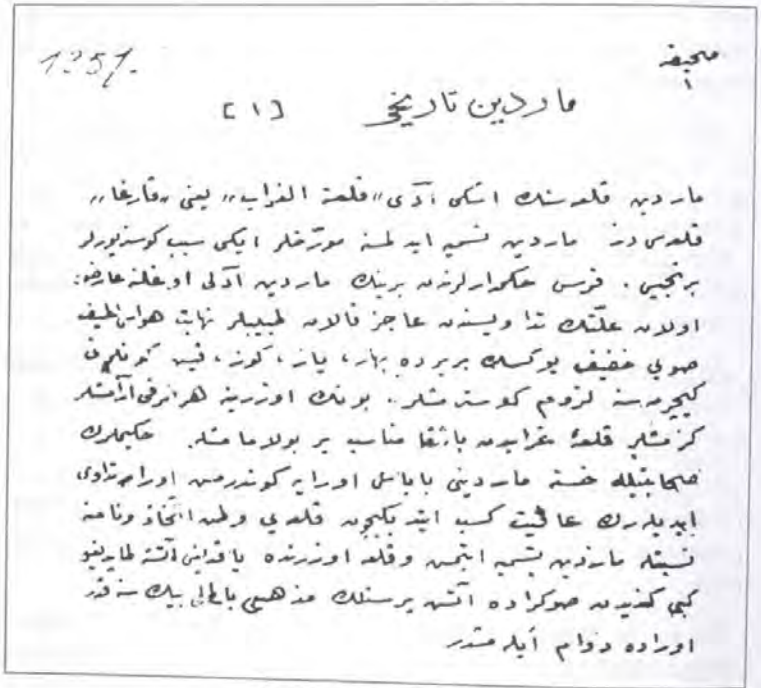 1359.
صحيفه
١
ماردين تاريخى [١]
ماردين قلعه سنك اسكى آدى "قلعة الغراب" يعنى "قارغا"
قلعه سى در ماردين تسميه ايدلمسنه مورخلر ايكى سبب كوستريورلر
برنجيسى . فرس حكمدارلرندن برينك ماردين آدلى اوغلنه عارض
اولان علتك تداويسندن عاجز قالان طبيبلر نهايت هواسى لطيف
صويى خفيف يوكسك بر يرده بهار ، ياز ، كوز ، قيش كونلرينى
كچيرمسنه لزوم كوسترمشلر . بونك اوزرينه هر طرفى آرامشلر
كزمشلر قلعهٔ غرابدن باشقا مناسب ير بولامامشلر . حكيملرك
خسته ماردينى باباسى اورايه كوندرمش اوراده تداوى
ايديلرك عافيت كسب ايتديكيچون قلعه يى وطن اتخاذ ونامنه
نسبتله ماردين تسميه ايتمش وقلعه اوزرنده ياقدينى آتشه طاپدينى
كبى كنديدن صوكراده آتش پرستلك مذهبى بيك سنه قدر
اوراده دوام ايله مشدر